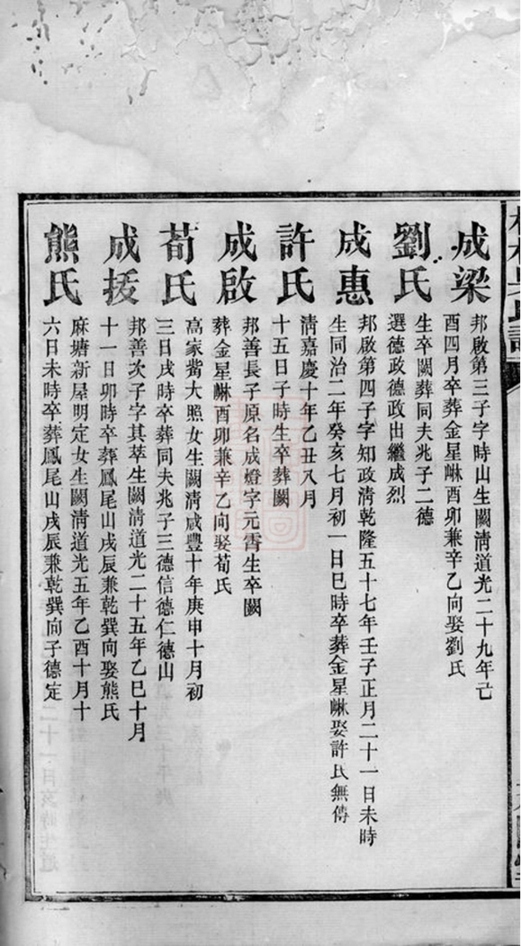 成梁
邦啟第三子字時山生闕清道光二十九年己
酉四月卒葬金星崊酉卯兼辛乙向娶劉氏
劉氏
生卒闕葬同夫兆子二德
選德政德政出繼成烈
成惠
邦啟第四子字知政清乾隆五十七年壬子正月二十一日未時
生同治二年癸亥七月初一日巳時卒葬金星崊娶許氏無傳
許氏
清嘉慶十年乙丑八月
十五日子時生卒葬闕
成啟
邦善長子原名成燈字元霄生卒闕
葬金星崊酉卯兼辛乙向娶荀氏
荀氏
高家嘴大照女生闕清咸豐十年庚申十月初
三日戌時卒葬同夫兆子三德信德仁德山
成援
邦善次子字其萃生闕清道光二十五年乙巳十月
十一日卯時卒葬鳳尾山戌辰兼乾巽向娶熊氏
熊氏
麻塘新屋明定女生闕清道光五年乙酉十月十
六日未時卒葬鳳尾山戌辰兼乾巽向子德定